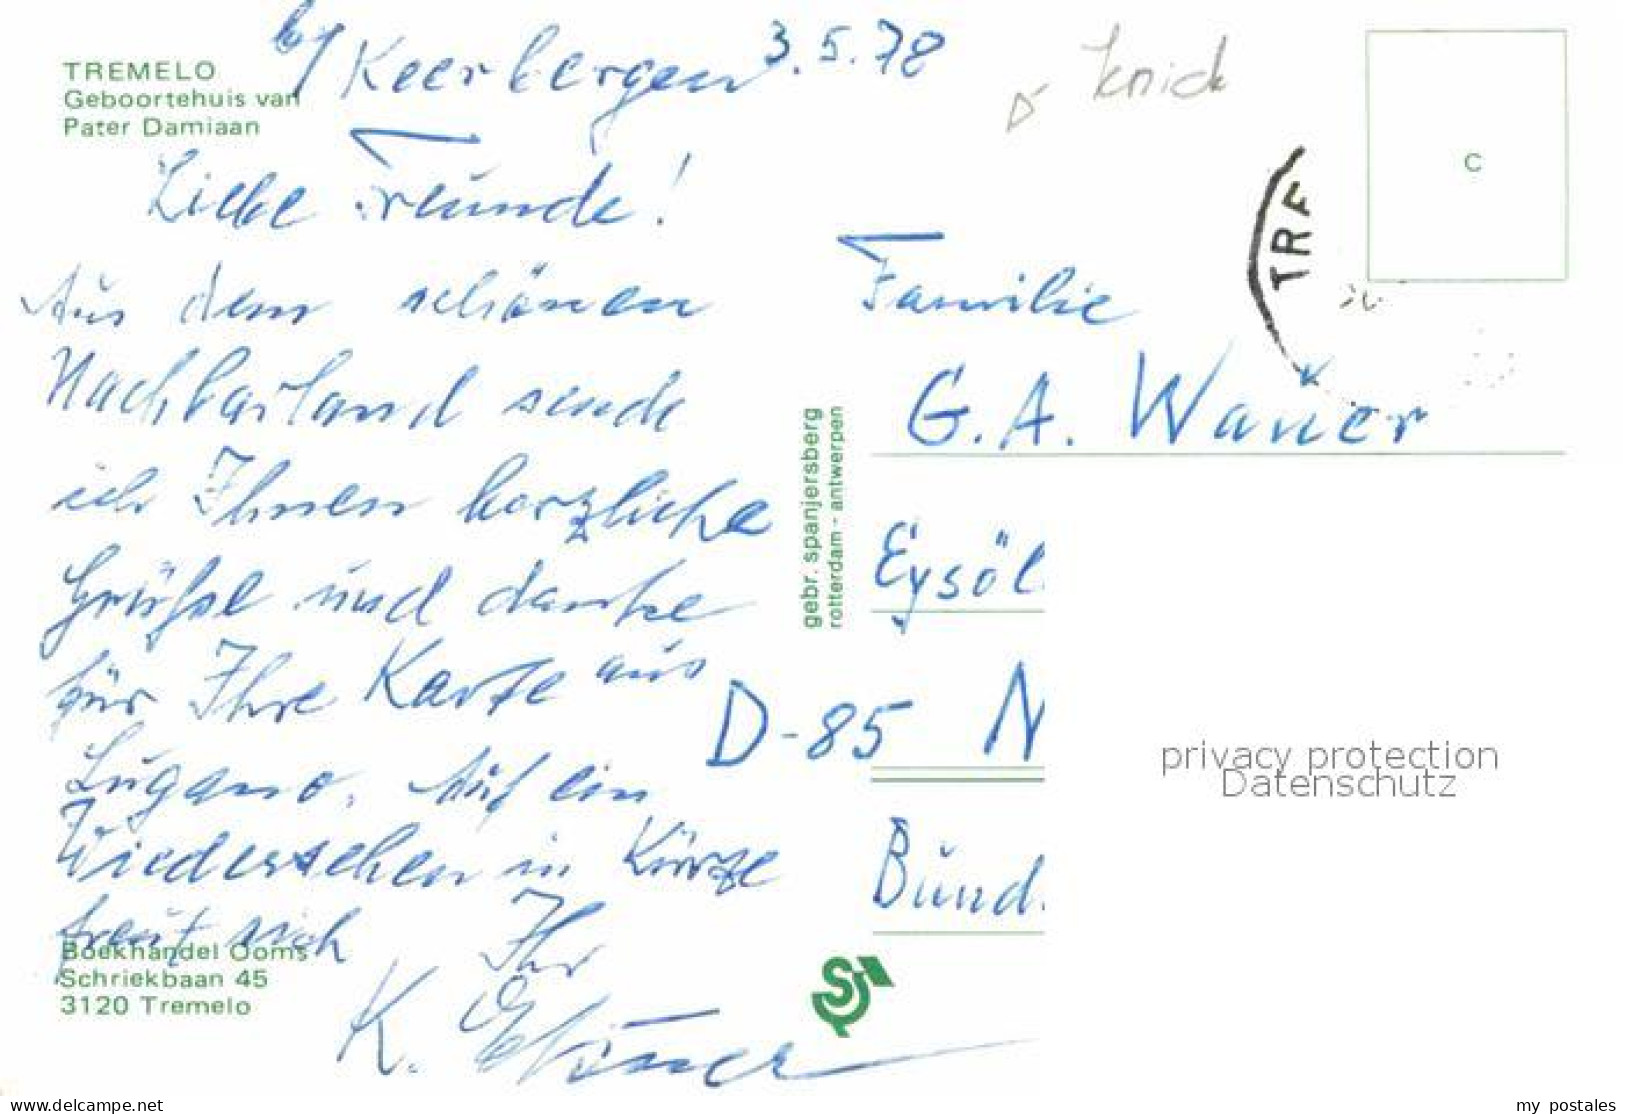 TREMELO
Geboortehuis van
Pater Damiaan
b/ Keerbergen 3.5.78
knick
C
TRF
Liebe Freunde!
Aus dem schönen
Nachbarland sende
ich Ihnen herzliche
Grüße und danke
für Ihre Karte aus
Lugano. Auf ein
Wiedersehen in Kürze
freut sich
Ihr
K.
Boekhandel Ooms
Schriekbaan 45
3120 Tremelo
gebr. spanjersberg
rotterdam - antwerpen
Familie
G. A. Wauer
Eysöl
D-85 N
Bund.
privacy protection
Datenschutz
www.delcampe.net
my_postales